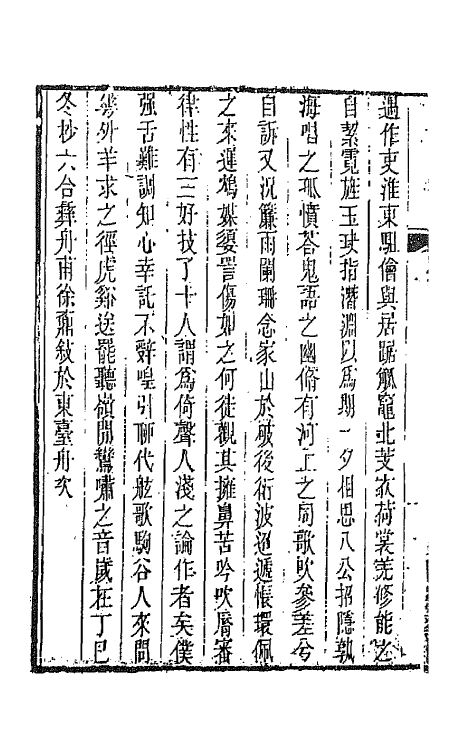 過作吏淮東駔儈與居踞觚竈北芰衣荷裳羌修能之
自絜霓旌玉軑指潛淵以爲期一夕相思八公招隱孰
海唱之孤憤荅鬼語之幽脩有河上之同歌吹參差兮
自訴又況簾雨闌珊念家山於破後衍波迢遞悵環佩
之來遲鴆媒嫛詈傷如之何徒觀其擁鼻苦吟吹脣審
律性有三好技了十人謂爲倚聲人淺之論作者矣僕
强舌難調知心幸託不辭喤引聊代舷歌駒谷人來問
嵾外羊求之徑虎谿送罷聽嶺間鸞嘯之音歲在丁巳
冬抄六合彝舟甫徐鼒敘於東臺舟次